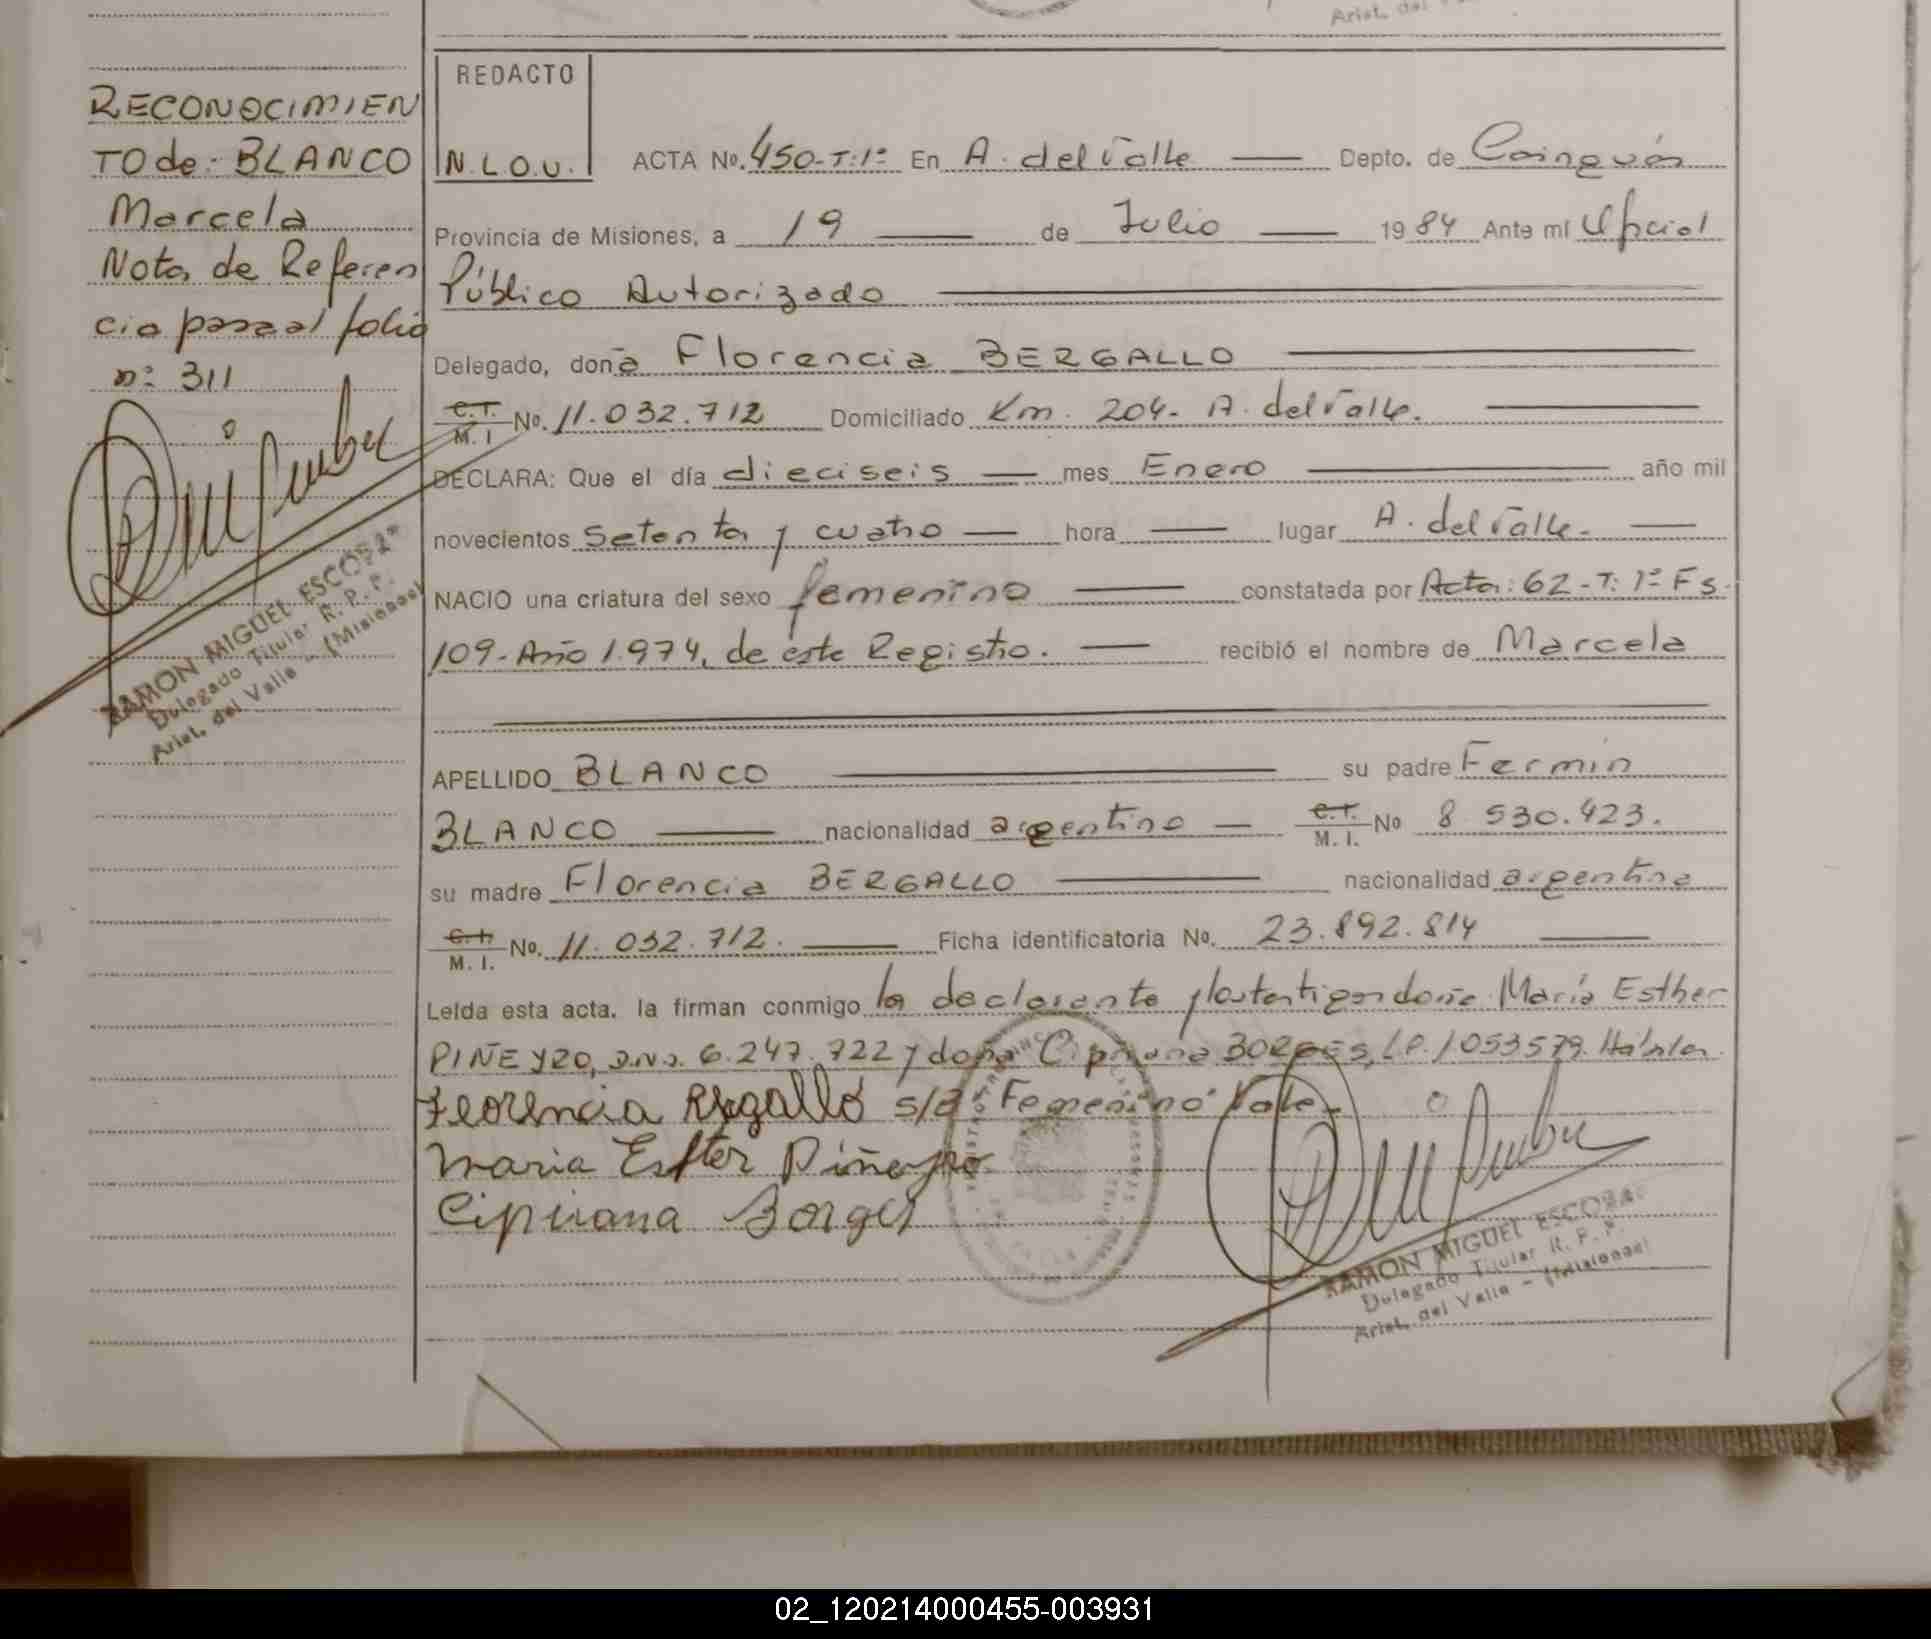 RECONOCIMIEN
TO de: BLANCO
Marcela
Nota de Referen
cia pasa al folio
nº 311
RAMON MIGUEL ESCOBAR
Delegado Titular R. P. P.
Arist. del Valle - (Misiones)
REDACTO
N.L.O.U.
ACTA No. 450-T:1º En A. del Valle Depto. de Cainguás
Provincia de Misiones, a 19 de Julio 1984 Ante mí Oficial
Público Autorizado
Delegado, doña Florencia BERGALLO
C.I. M. I No. 11.032.712 Domiciliado Km. 204- A. del Valle.
DECLARA: Que el día dieciseis mes Enero año mil
novecientos setenta y cuatro hora lugar A. del Valle.
NACIO una criatura del sexo femenino constatada por Acta: 62-T: 1º Fs.
109-Año 1.974, de este Registro. recibió el nombre de Marcela
APELLIDO BLANCO su padre Fermin
BLANCO nacionalidad argentino C.I. M. I. No 8 530.423.
su madre Florencia BERGALLO nacionalidad argentina
C.I. M. I. No. 11.032.712. Ficha identificatoria No. 23.892.814
Leída esta acta, la firman conmigo la declarante y los testigos doña María Esther
PIÑEYRO, D.N.I. 6.247.722 y doña Cipriana BORGES, L.P. 1053579. Hábiles.
Florencia Bergallo s/a: Femenino Vale.
Maria Ester Piñeyro
Cipriana Borges
RAMON MIGUEL ESCOBAR
Delegado Titular R. P. P.
Arist. del Valle - (Misiones)
02_120214000455-003931